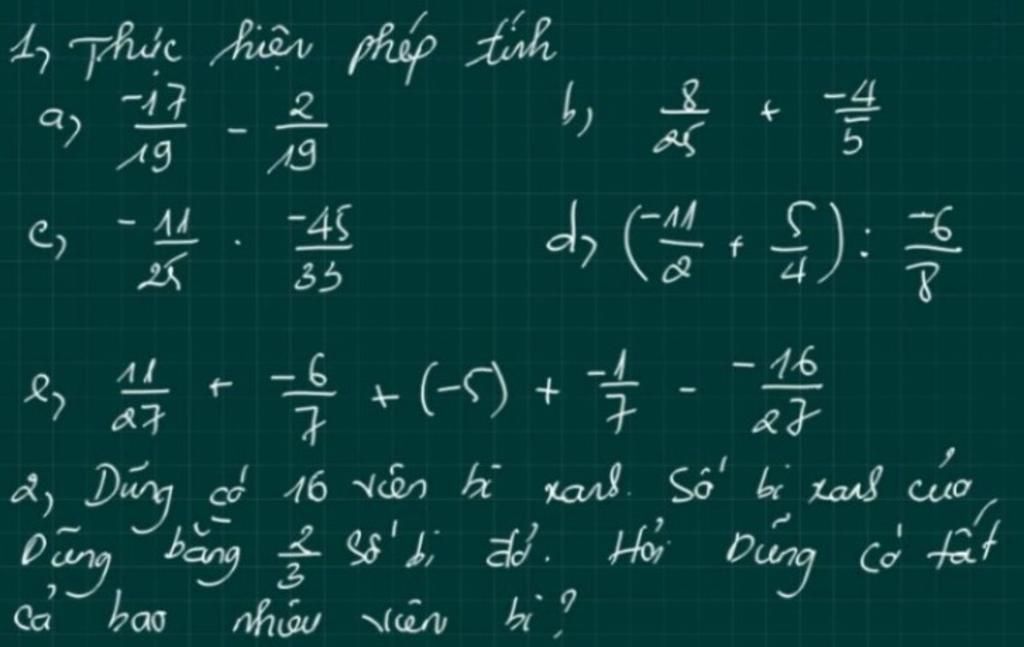 1, Thực hiện phép tính
a, -17/19 - 2/19 b, 8/25 + -4/5
c, -11/25 . -45/33 d, (-11/2 + 5/4) : -6/8
e, 11/27 + -6/7 + (-5) + -1/7 - -16/27
2, Dũng có 16 viên bi xanh. Số bi xanh của
Dũng bằng 2/3 số bi đỏ. Hỏi Dũng có tất
cả bao nhiêu viên bi?